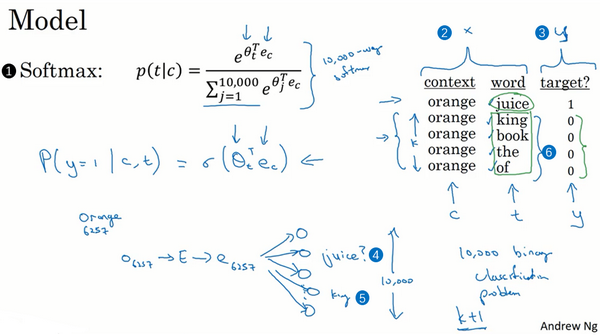 Model
❶ Softmax: p(t|c) = e^{θ_t^T e_c} / Σ_{j=1}^{10,000} e^{θ_j^T e_c}
10,000-way
softmax
❷ x
❸ y
context word target?
orange juice 1
orange king 0
orange book 0
orange the 0
orange of 0
k
❻
c t y
P(y=1 | c,t) = σ(θ_t^T e_c) ←
Orange
6257
o_6257 → E → e_6257
juice? ❹
king ❺
10,000
10,000 binary
classification
problem
k+1
Andrew Ng